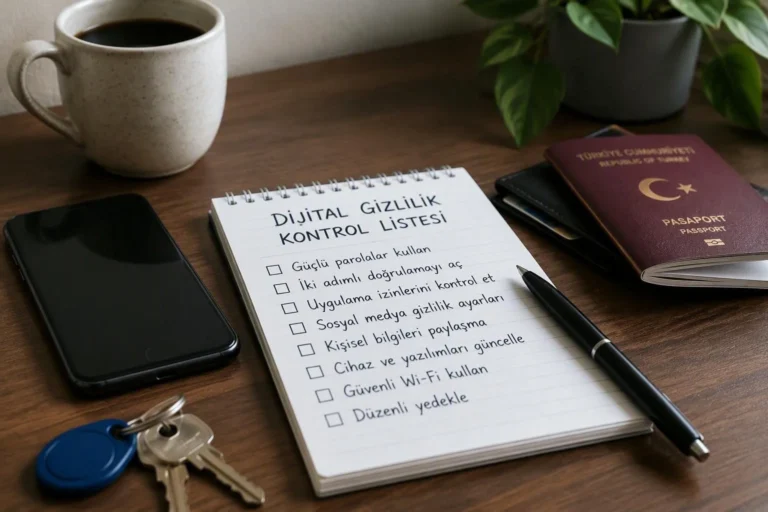 DİJİTAL GİZLİLİK
KONTROL LİSTESİ
Güçlü parolalar kullan
İki adımlı doğrulamayı aç
Uygulama izinlerini kontrol et
Sosyal medya gizlilik ayarları
Kişisel bilgileri paylaşma
Cihaz ve yazılımları güncelle
Güvenli Wi-Fi kullan
Düzenli yedekle
TÜRKİYE CUMHURİYETİ
REPUBLIC OF TURKEY
PASAPORT
PASSPORT